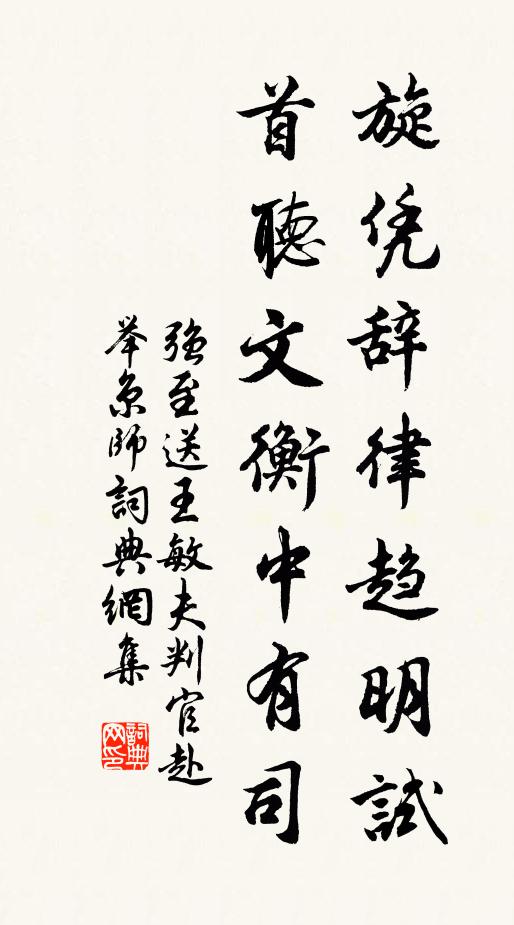 旋凭辞律趋明試
首聴文衡中有司
强至送王敏夫判官赴
举京師詞典網集
詞典网印